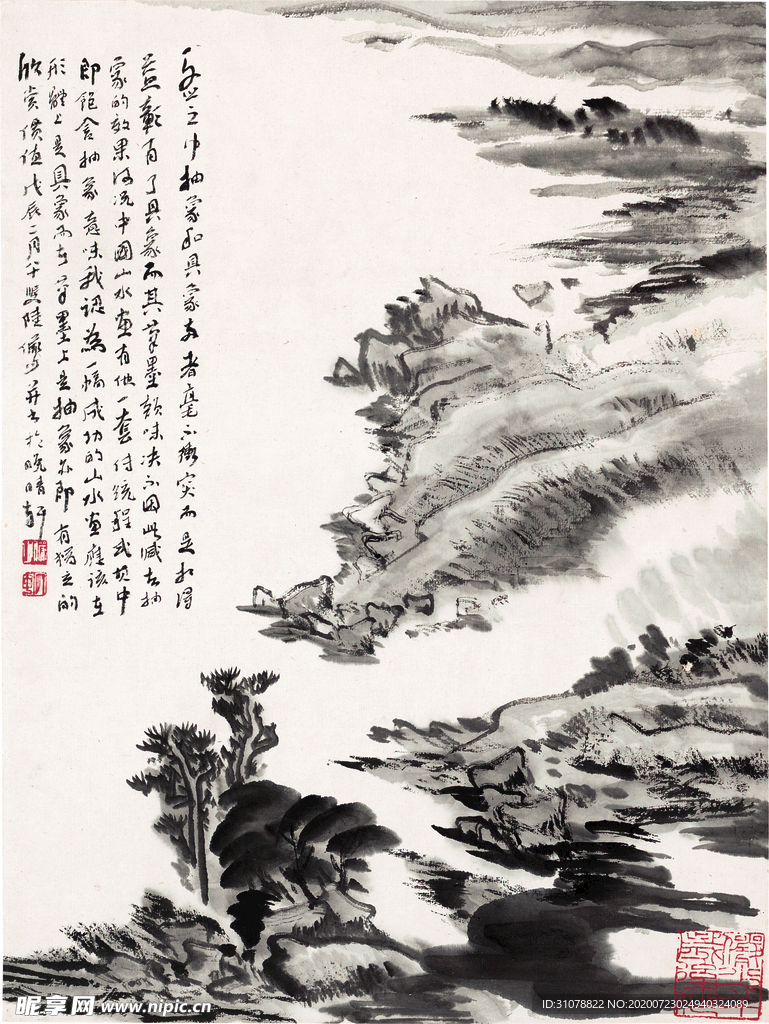 艺之中抽象和具象两者毫不冲突而是相得
益彰有了具象而其笔墨韵味决不因此减去抽
象的效果何况中国山水画有他一套传统程式其中
即饱含抽象意味我认为一幅成功的山水画应该在
形体上是具象而在笔墨上是抽象亦即有独立的
欣赏价值戊辰二月 陆俨少并书于晚晴轩
昵享网 www.nipic.cn
ID:31078822 NO:20200723024940324089